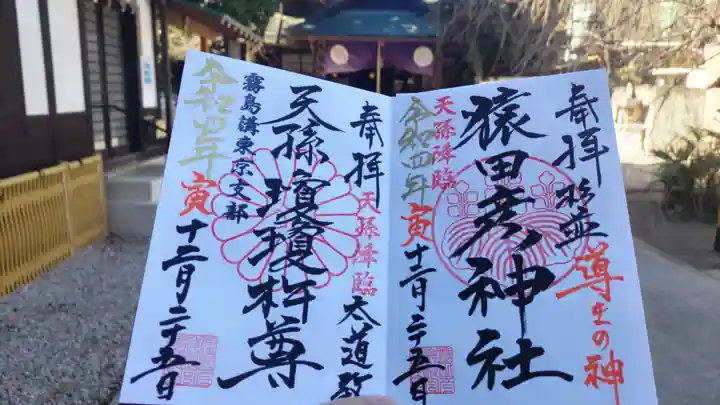 奉拝 杉並
導きの神
猿田彦神社
天孫降臨
令和四年
寅
十二月二十五日
奉拝
天孫降臨
太道教
天孫瓊瓊杵尊
霧島講東京支部
令和四年
寅
十二月二十五日